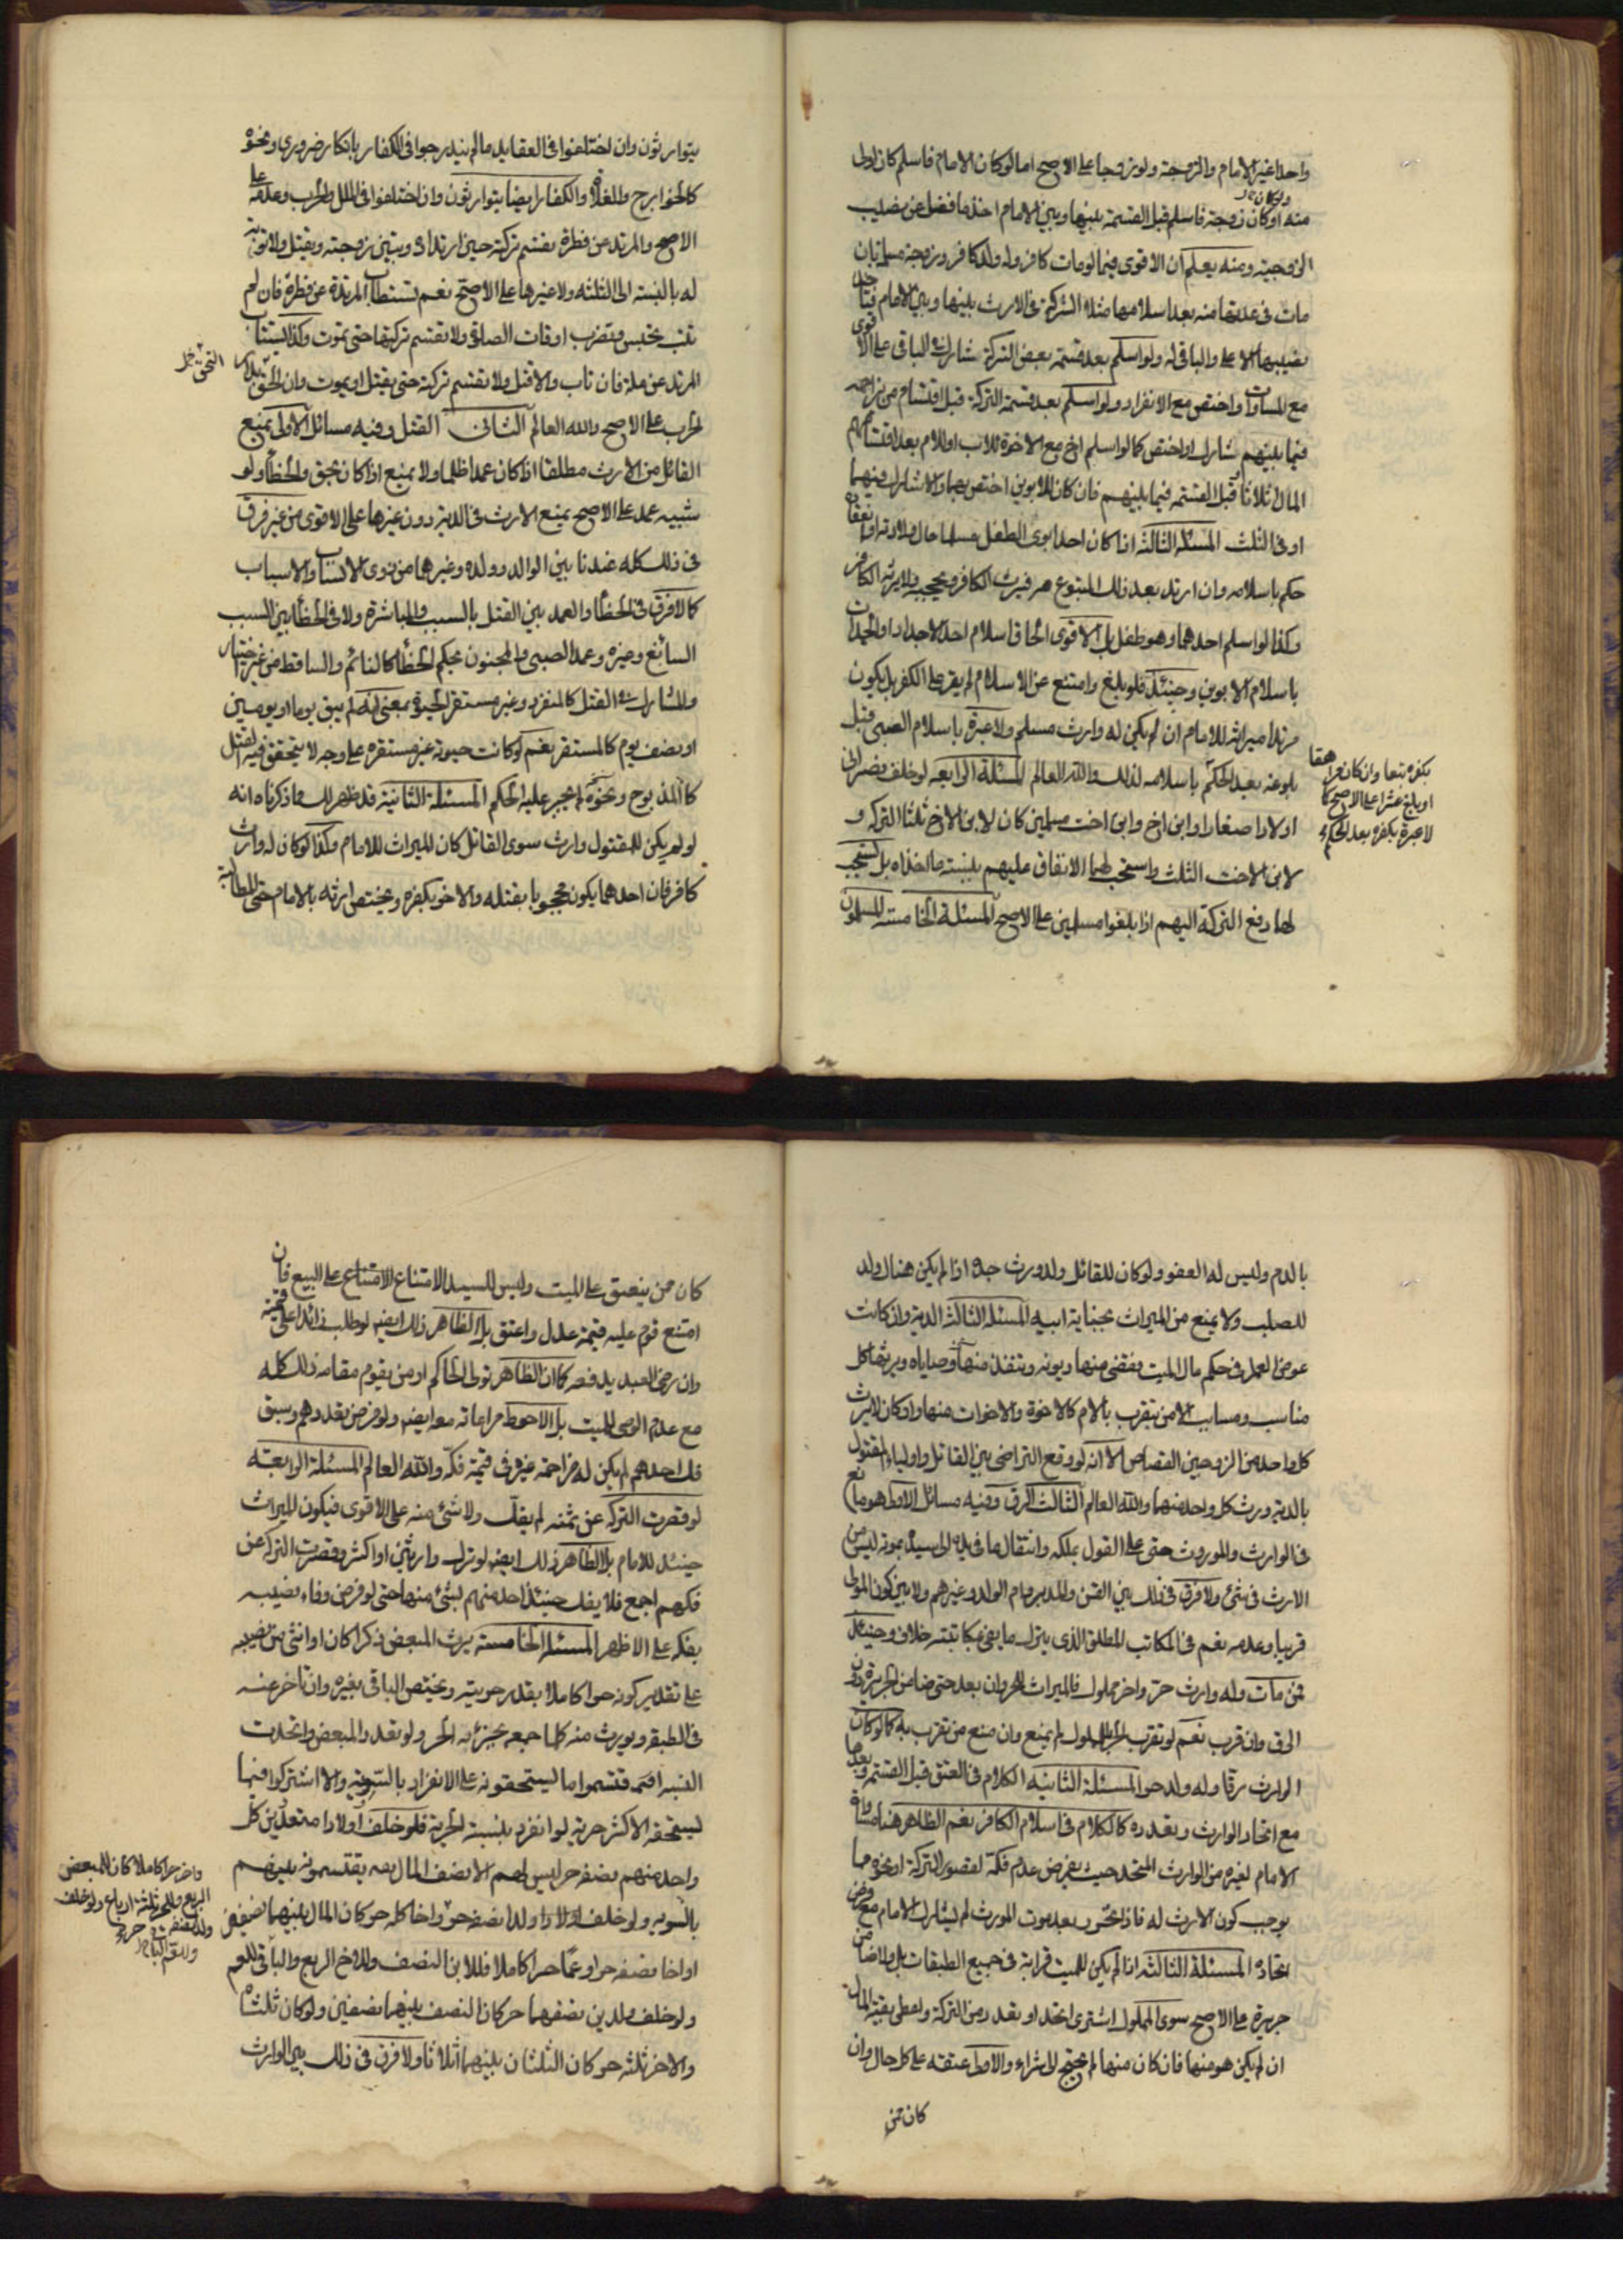 واحدا غير الامام والزوجة ولو زوجا على الاصح اما لو كان الامام فاسلم كان اولى
منه ولو كان زوجة فاسلم قبل القسمة بينها وبين الامام اخذ ما فضل عن نصيب
الزوجية ومنه يعلم ان الاقوى فيما لو مات كافر وله ولد كافر وزوجة مسلمة بان
مات في عدتها منه بعد اسلامها مثلا الشركة في الارث بينها وبين الامام فتاخذ
نصيبها الاعلى والباقي له ولو اسلم بعد قسمة بعض التركة شارك في الباقي على الاقوى
مع المساوات واختص مع الانفراد ولو اسلم بعد قسمة التركة قبل اقتسام من زاحمه
فيما بينهم شارك او اختص كما لو اسلم اخ مع الاخوة للاب او للام بعد اقتسامهم
المال اثلاثا قبل القسمة فيما بينهم فان كان للابوين اختص بهما والا شارك فيهما
او في الثلث المسئلة الثالثة اذا كان احد ابوي الطفل مسلما حال ولادته او انعقاده
حكم باسلامه وان ارتد بعد ذلك المتبوع فيرث الكافر ويحجبه ولا يرثه الكافر
وكذا لو اسلم احدهما وهو طفل بل الاقوى الحاق اسلام احد الاجداد او الجدات
باسلام الابوين وحينئذ فلو بلغ وامتنع عن الاسلام لم يقر على الكفر بل يكون
مرتدا ميراثه للامام ان لم يكن له وارث مسلم ولا عبرة باسلام الصبي قبل
بلوغه بعد الحكم باسلامه لذلك والله العالم المسئلة الرابعه لو خلف نصراني
اولادا صغارا وابن اخ وابن اخت مسلمين كان لابن الاخ ثلثا التركة و
لابن الاخت الثلث واستحب لهما الانفاق عليهم بنسبة ما اخذاه بل يستحب
لهما دفع التركة اليهم اذا بلغوا مسلمين على الاصح المسئلة الخامسة المسلمون
بكفره تبعا وان كان مراهقا
او بلغ عشرا على الاصح كما
لا عبرة بكفره بعد الحكم
يتوارثون وان اختلفوا في العقايد ما لم يندرجوا في الكفار بانكار ضروري ونحوه
كالخوارج والغلاة والكفار ايضا يتوارثون وان اختلفوا في الملل والحرب وعدمه على
الاصح والمرتد عن فطرة يقسم تركته حين ارتداده وتبين زوجته ويقتل ولا توبة
له بالنسبة الى الثلثة ولا غيرها على الاصح نعم تستتاب المرتدة عن فطرة فان لم
تتب تحبس وتضرب اوقات الصلوة ولا تقسم تركتها حتى تموت وكذا يستتاب
المرتد عن ملة فان تاب والا قتل ولا تقسم تركته حتى يقتل او يموت وان لحق بدار
الحرب على الاصح والله العالم الثاني القتل وفيه مسائل الاولى يمنع
القاتل من الارث مطلقا اذا كان عمدا ظلما ولا يمنع اذا كان بحق والخطأ ولو
شبيه عمد على الاصح يمنع الارث في الدية دون غيرها على الاقوى من غير فرق
في ذلك كله عندنا بين الوالد وولده وغيرهما من ذوي الانساب والاسباب
كما لا فرق في الخطأ والعمد بين القتل بالسبب والمباشرة ولا في الخطأ بين السبب
السائغ وغيره وعمد الصبي والمجنون بحكم الخطأ كالنائم والساقط من غير اختيار
والمشارك في القتل كالمنفرد وغير مستقر الحيوة بمعنى انه لم يبق يوما او يومين
او نصف يوم كالمستقر نعم لو كانت حيوته غير مستقره على وجه لا يتحقق فيه القتل
كالمذبوح ونحوه لم يجر عليه الحكم المسئلة الثانية قد ظهر لك مما ذكرناه انه
لو لم يكن للمقتول وارث سوى القاتل كان الميراث للامام وكذا لو كان له وارث
كافر فان احدهما يكون محجوبا بقتله والاخر بكفره ويختص ارثه بالامام حتى المطالبة
بالدم وليس له العفو ولو كان للقاتل ولد ورث جده اذا لم يكن هناك ولد
للصلب ولا يمنع من الميراث بجناية ابيه المسئلة الثالثة الدية وان كانت
عوض العمد في حكم مال الميت يقضى منها ديونه وتنفذ منها وصاياه ويرثها كل
مناسب ومسابب الا من يتقرب بالام كالاخوة والاخوات منها وان كان لا يرث
كل واحد من الزوجين القصاص الا انه لو وقع التراضي بين القاتل واولياء المقتول
بالدية ورث كل واحد منهما والله العالم الثالث الرق وفيه مسائل الاولى هو مانع
في الوارث والموروث حتى على القول بملكه وانتقال ما في يده الى سيده بموته ليس من
الارث في شئ ولا فرق في ذلك بين القن والمدبر وام الولد وغيرهم ولا بين كون المولى
قريبا وعدمه نعم في المكاتب المطلق الذي يترك ما يفي بمكاتبته خلاف وحينئذ
فمن مات وله وارث حر واخر مملوك فالميراث للحر وان بعد حتى ضامن الجريرة دون
الرق وان قرب نعم لو تقرب الحر بالمملوك لم يمنع وان منع من تقرب به كما لو كان
الوارث رقا وله ولد حر المسئلة الثانيه الكلام في العتق قبل القسمة وبعدها
مع اتحاد الوارث وتعدده كالكلام في اسلام الكافر نعم الظاهر هنا مساواة
الامام لغيره من الوارث المتحد حيث يفرض عدم فكه لقصور التركة او نحوه مما
يوجب كون الارث له فاذا تحرر بعد موت المورث لم يشارك الامام مع فرض
اتحاده المسئلة الثالثه اذا لم يكن للميت قرابة في جميع الطبقات بل ولا ضامن
جريرة على الاصح سوى المملوك اشترى اتحد او تعدد من التركة ويعطى بقية المال
ان لم يكن هو منها فان كان منها لم يحتج للشراء والاحوط عتقه على كل حال وان
كان ممن
كان ممن ينعتق على الميت وليس للسيد الامتناع الامتناع على البيع فان
امتنع قوم عليه قيمة عدل واعتق بل الظاهر ذلك ايضا لو طلب زائدا على قيمته
وان رضي العبد بدفعه كما ان الظاهر تولى الحاكم او من يقوم مقامه ذلك كله
مع عدم الوصي للميت بل الاحوط مراعاته معه ايضا ولو فرض تعددهم وسبق
فك احدهم لم يكن له مزاحمة غيره في قيمة فكه والله العالم المسئلة الرابعة
لو قصرت التركه عن ثمنه لم يفك ولا شئ منه على الاقوى فيكون الميراث
حينئذ للامام بل الظاهر ذلك ايضا لو ترك وارثين او اكثر وقصرت التركه عن
فكهم اجمع فلا يفك حينئذ احد منهم بشئ منها حتى لو فرض وفاء نصيبه
بفكه على الاظهر المسئلة الخامسة يرث المبعض ذكرا كان او انثى من نصيبه
على تقدير كونه حرا كاملا بقدر حريته ويختص الباقي بغيره وان تاخر عنه
في الطبقه ويورث منه كلما جمعه بجزئه الحر ولو تعدد المبعض واتحدت
النسبة اقتسموا ما يستحقونه على الانفراد بالسوية والا اشتركوا فيما
يستحقه الاكثر حرية لو انفرد بنسبة الحرية فلو خلف اولادا متعددين كل
واحد منهم نصفه حر ليس لهم الا نصف المال يقتسمونه بينهم
بالسويه ولو خلف ولدا نصفه حر واخا كله حر كان المال بينهما نصفين
او اخا نصفه حر وعما حرا كاملا فللابن النصف وللاخ الربع والباقي للعم
ولو خلف ولدين نصفهما حر كان النصف بينهما نصفين ولو كان ثلثاه
والاخر ثلثه حر كان الثلثان بينهما اثلاثا ولا فرق في ذلك بين الوارث
واخر حرا كاملا كان للمبعض
الربع وللحر ثلثة ارباع ولو خلف